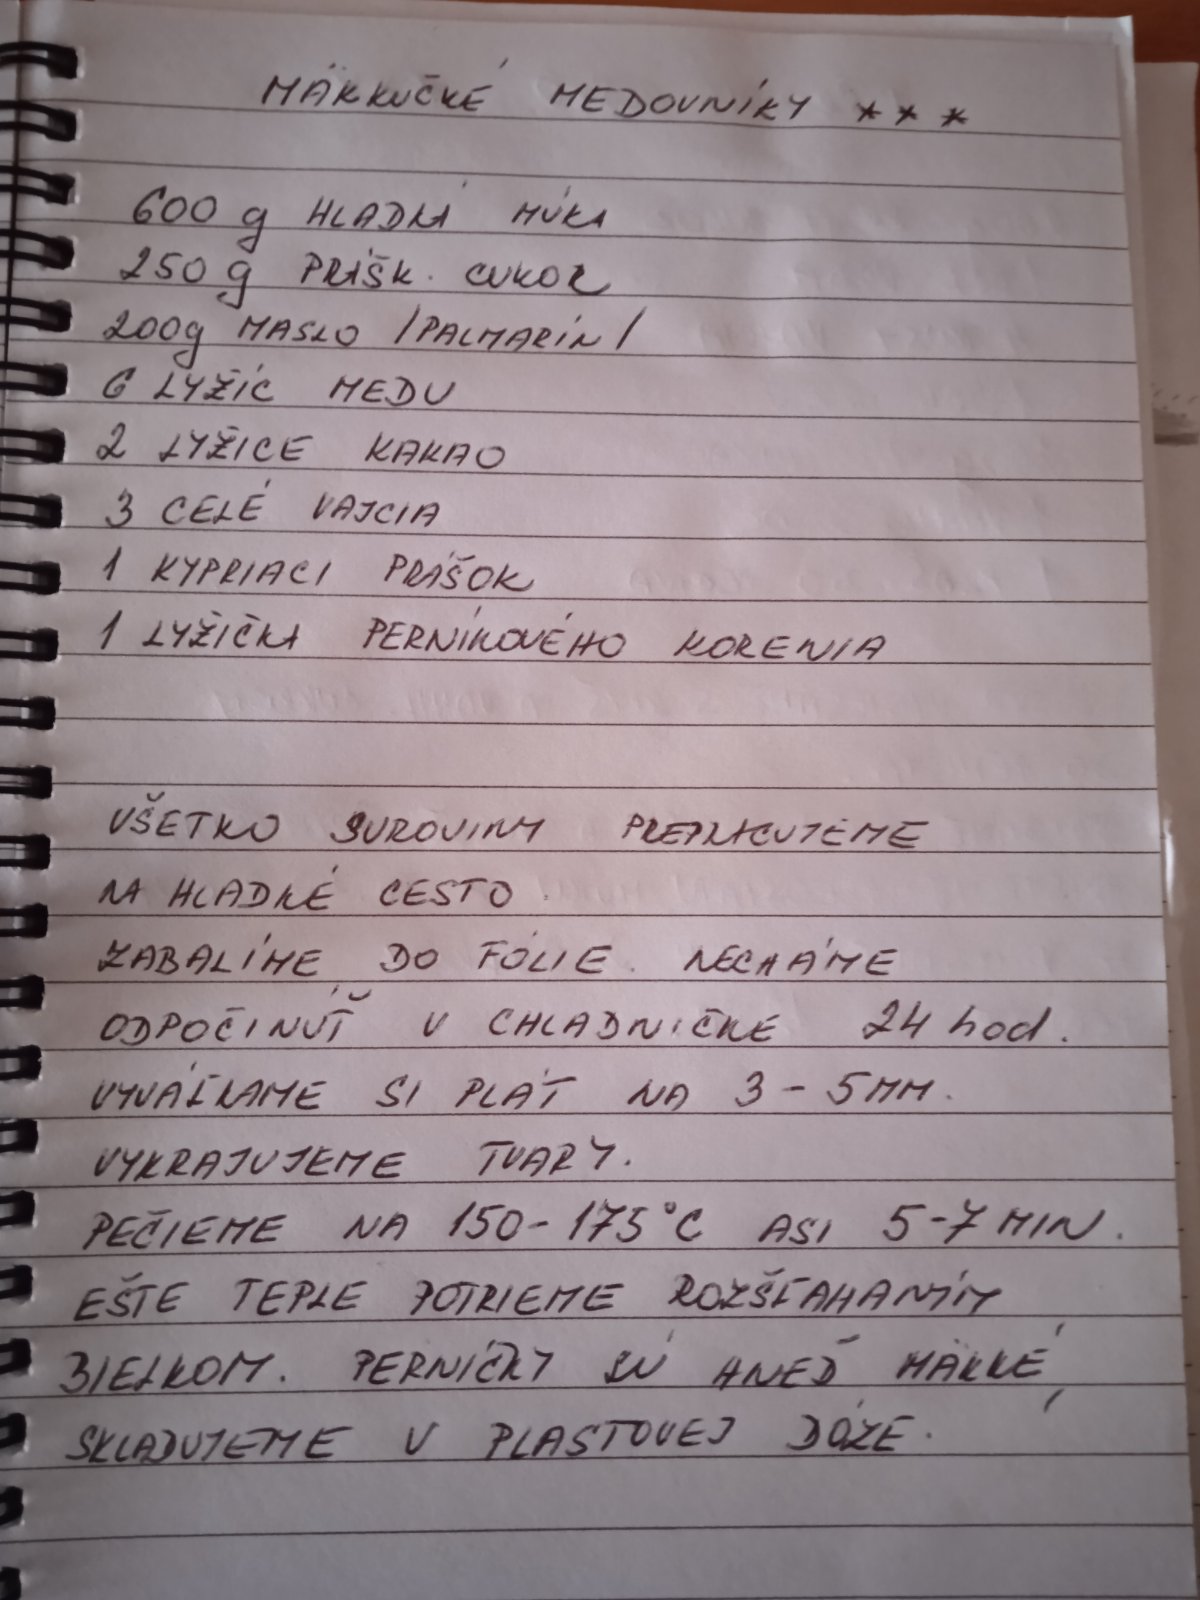 MÄKKUČKÉ MEDOVNÍKY ***
600 g HLADKÁ MÚKA
250 g PRÁŠK. CUKOR
200g MASLO /PALMARÍN/
6 LYŽÍC MEDU
2 LYŽICE KAKAO
3 CELÉ VAJCIA
1 KYPRIACI PRÁŠOK
1 LYŽIČKA PERNÍKOVÉHO KORENIA
VŠETKO SUROVINY PREPRACUJEME
NA HLADKÉ CESTO.
ZABALÍME DO FÓLIE. NECHÁME
ODPOČINÚŤ V CHLADNIČKE 24 hod.
VYVÁĽKAME SI PLÁT NA 3 - 5 MM.
VYKRAJUJEME TVARY.
PEČIEME NA 150-175°C ASI 5-7 MIN.
EŠTE TEPLE POTRIEME ROZŠĽAHANÝM
BIELKOM. PERNÍČKY SÚ HNEĎ MÄKKÉ,
SKLADUJEME V PLASTOVEJ DÓZE.